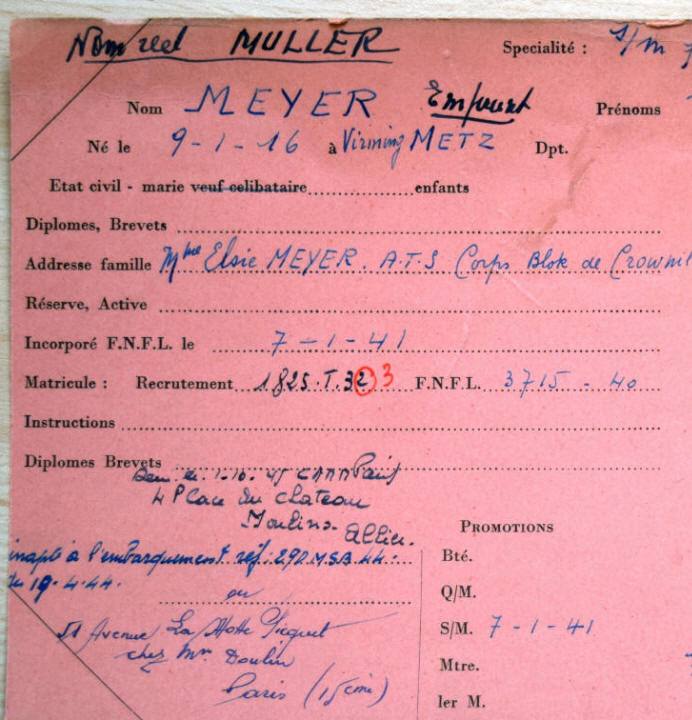 Nom réel MULLER Specialité : S/m
Nom MEYER Emprunt Prénoms
Né le 9-1-16 à Virming METZ Dpt.
Etat civil - marie veuf celibataire enfants
Diplomes, Brevets
Addresse famille Mme Elsie MEYER. A.T.S Corps Blok de Crownil
Réserve, Active
Incorporé F.N.F.L. le 7-1-41
Matricule : Recrutement 1825.T.32 3 F.N.F.L. 3715 - 40
Instructions
Diplomes Brevets
1-10-45 Paris
4 Place du Chateau
Moulins - Allier.
PROMOTIONS
inapte à l'embarquement réf: 290 MSB 44.
du 19.4.44.
ou
51 Avenue La Motte Picquet
chez Mr Doulin
Paris (15ème)
Bté.
Q/M.
S/M. 7-1-41
Mtre.
Ier M.